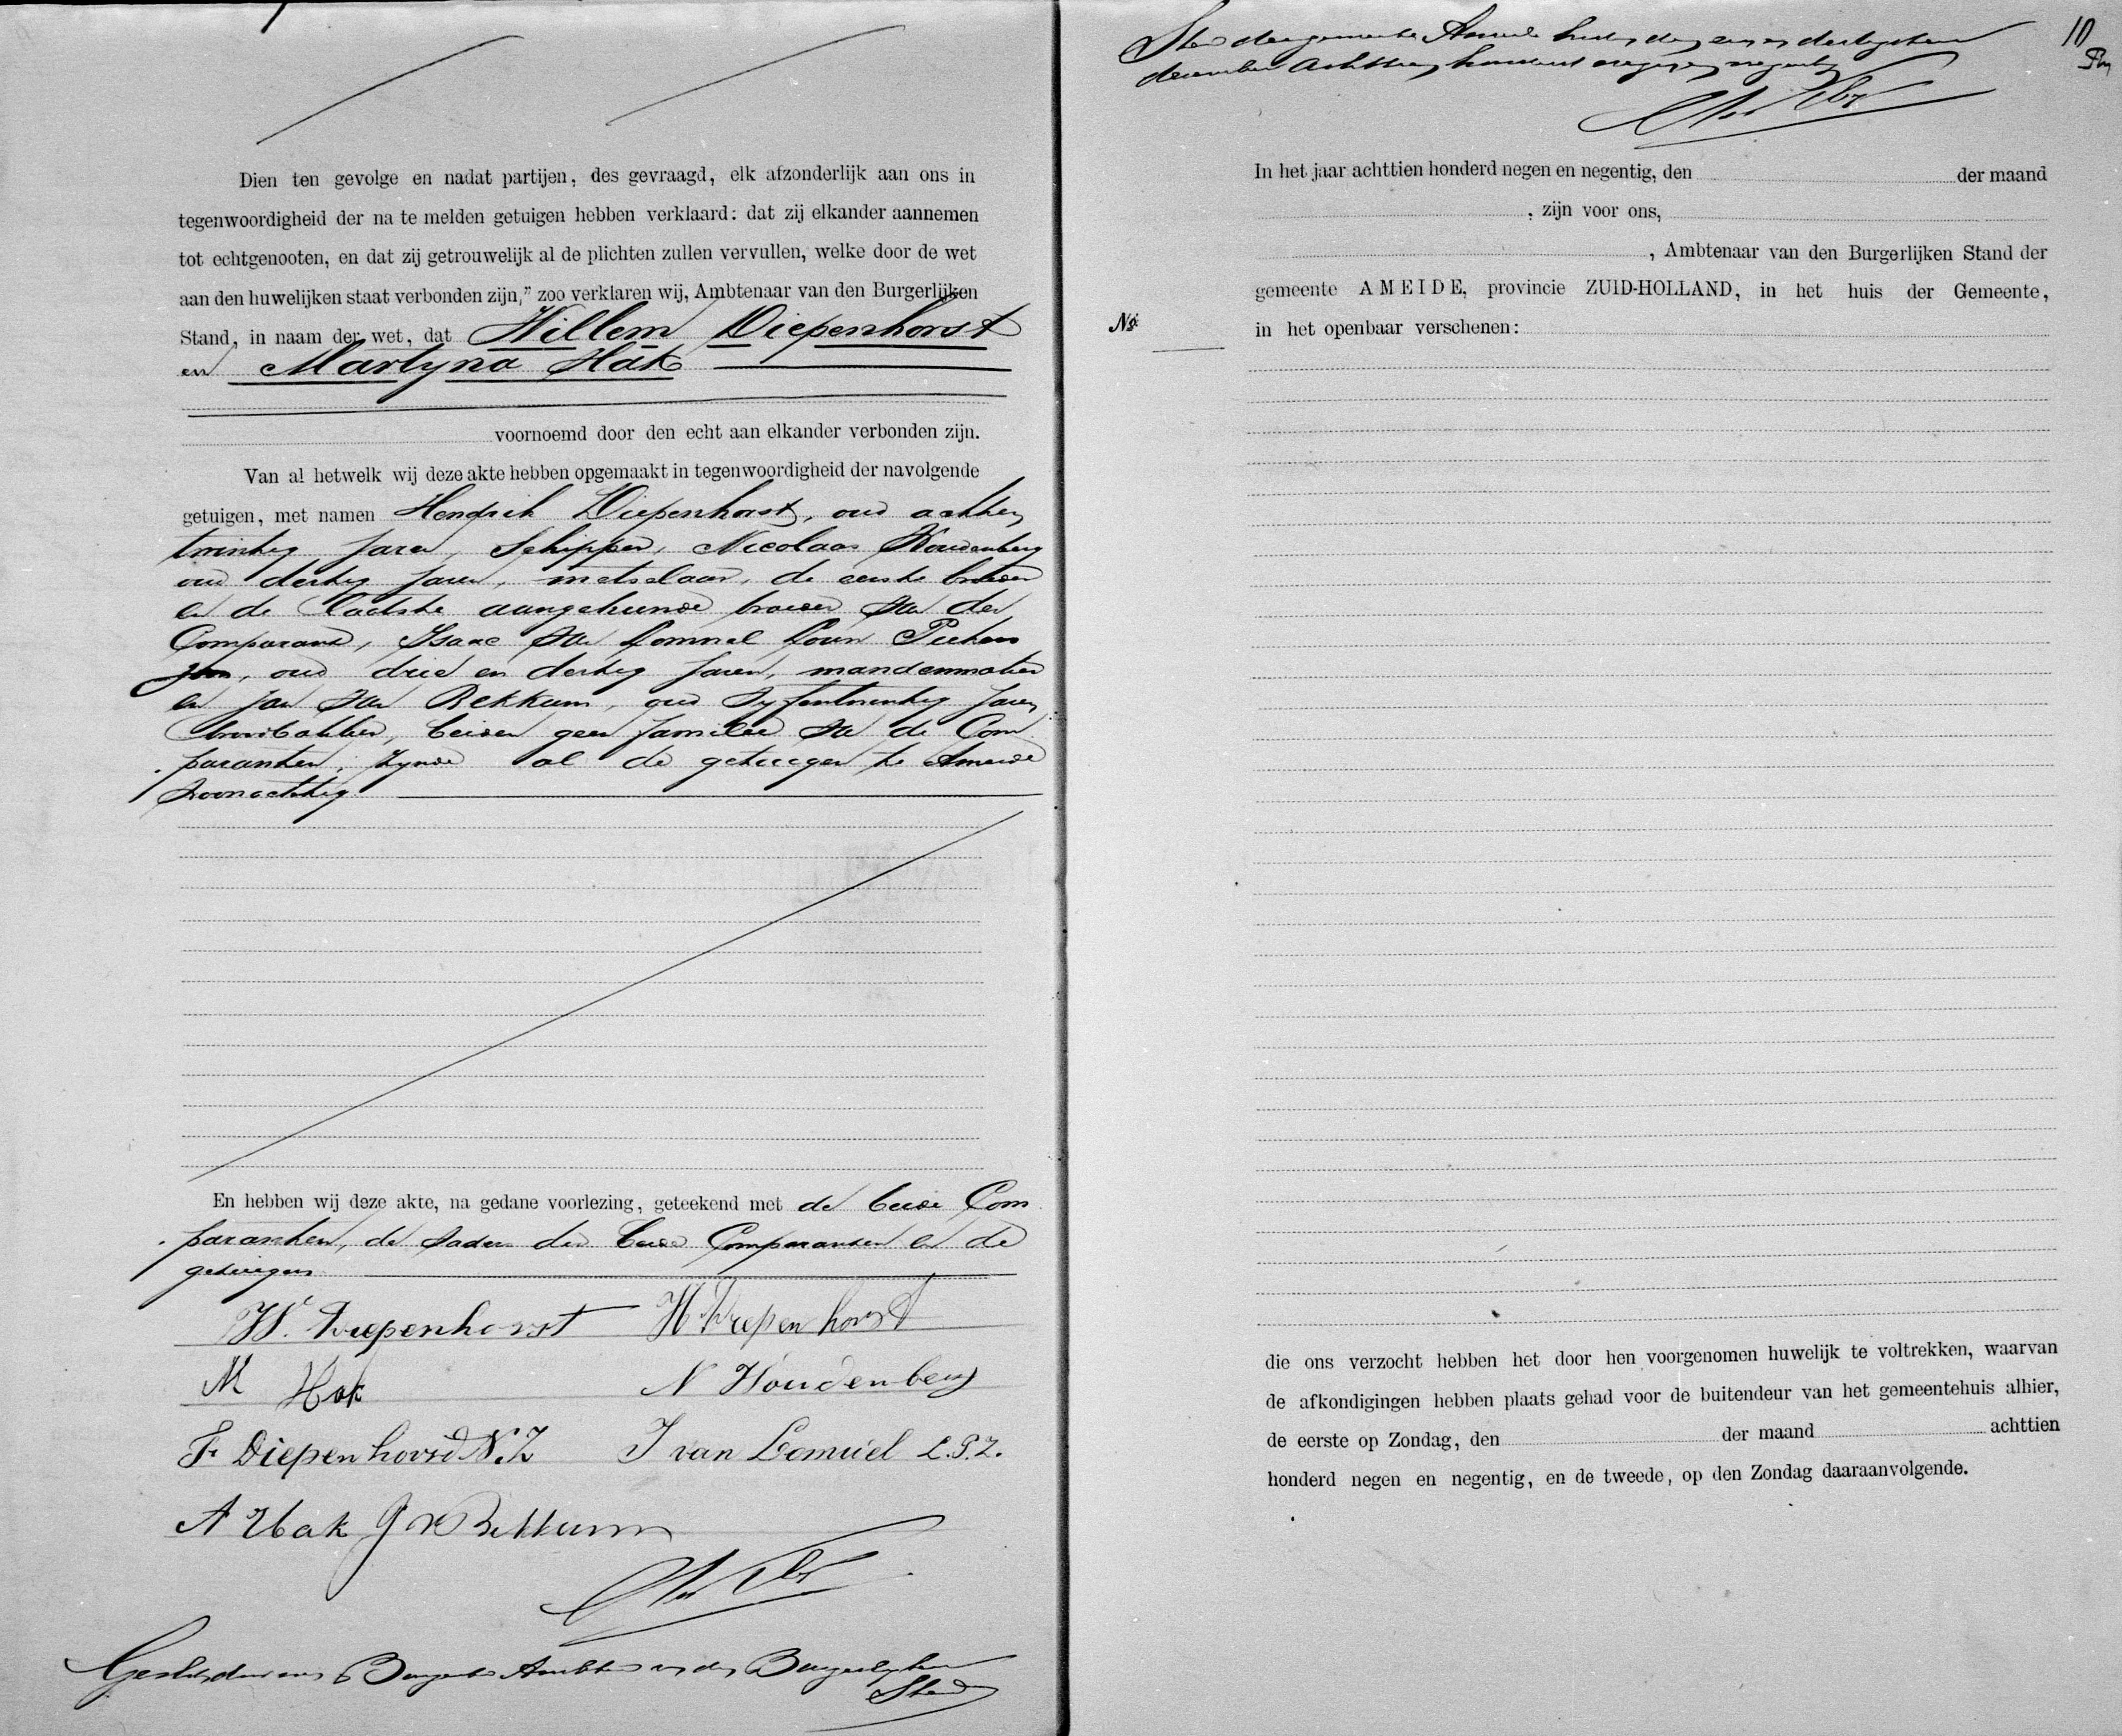 Dien ten gevolge en nadat partijen, des gevraagd, elk afzonderlijk aan ons in
tegenwoordigheid der na te melden getuigen hebben verklaard: dat zij elkander aannemen
tot echtgenooten, en dat zij getrouwelijk al de plichten zullen vervullen, welke door de wet
aan den huwelijken staat verbonden zijn," zoo verklaren wij, Ambtenaar van den Burgerlijken
Stand, in naam der wet, dat Willem Diepenhorst
en Martyna Hak
voornoemd door den echt aan elkander verbonden zijn.
Van al hetwelk wij deze akte hebben opgemaakt in tegenwoordigheid der navolgende
getuigen, met namen Hendrik Diepenhorst, oud achten
twintig jaren, Schipper, Nicolaas Houdenberg
oud dertig jaren, metselaar, de eerste broeder
en de laatste aangehuwde broeder van den
Comparant, Isaac van Lomuel Louw Pieters
zoon, oud drie en dertig jaren, mandenmaker
en Jan van Bekkum, oud vyfentwintig jaren
broodbakker, beiden geen familie van de Com
paranten, zynde al de getuigen te Ameide
woonachtig.
En hebben wij deze akte, na gedane voorlezing, geteekend met de beide Com
paranten, de vaders der beide Comparanten en de
getuigen
W. Diepenhorst H Diepenhorst
M Hak N Houdenberg
F Diepenhorst N.Z. I van Lomuel L.P.Z.
A Hak J v Bekkum
Gesloten door ons Ambtenaar van den Burgerlyken
Stand
Stand der gemeente Ameide heden den een en dertigsten
december achttien honderd negen en negentig
10
In het jaar achttien honderd negen en negentig, den der maand
, zijn voor ons,
, Ambtenaar van den Burgerlijken Stand der
gemeente AMEIDE, provincie ZUID-HOLLAND, in het huis der Gemeente,
No.
in het openbaar verschenen:
die ons verzocht hebben het door hen voorgenomen huwelijk te voltrekken, waarvan
de afkondigingen hebben plaats gehad voor de buitendeur van het gemeentehuis alhier,
de eerste op Zondag, den der maand achttien
honderd negen en negentig, en de tweede, op den Zondag daaraanvolgende.